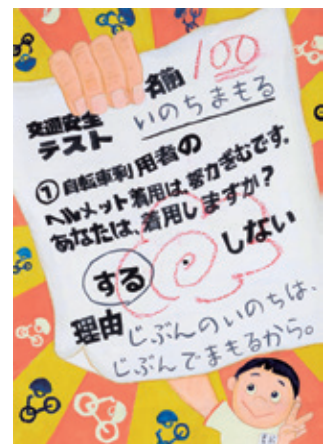 100
交通安全
テスト
名前
いのちまもる
① 自転車利用者の
ヘルメット着用は、努力ぎむです。
あなたは、着用しますか?
する
しない
理由
じぶんのいのちは、
じぶんでまもるから。